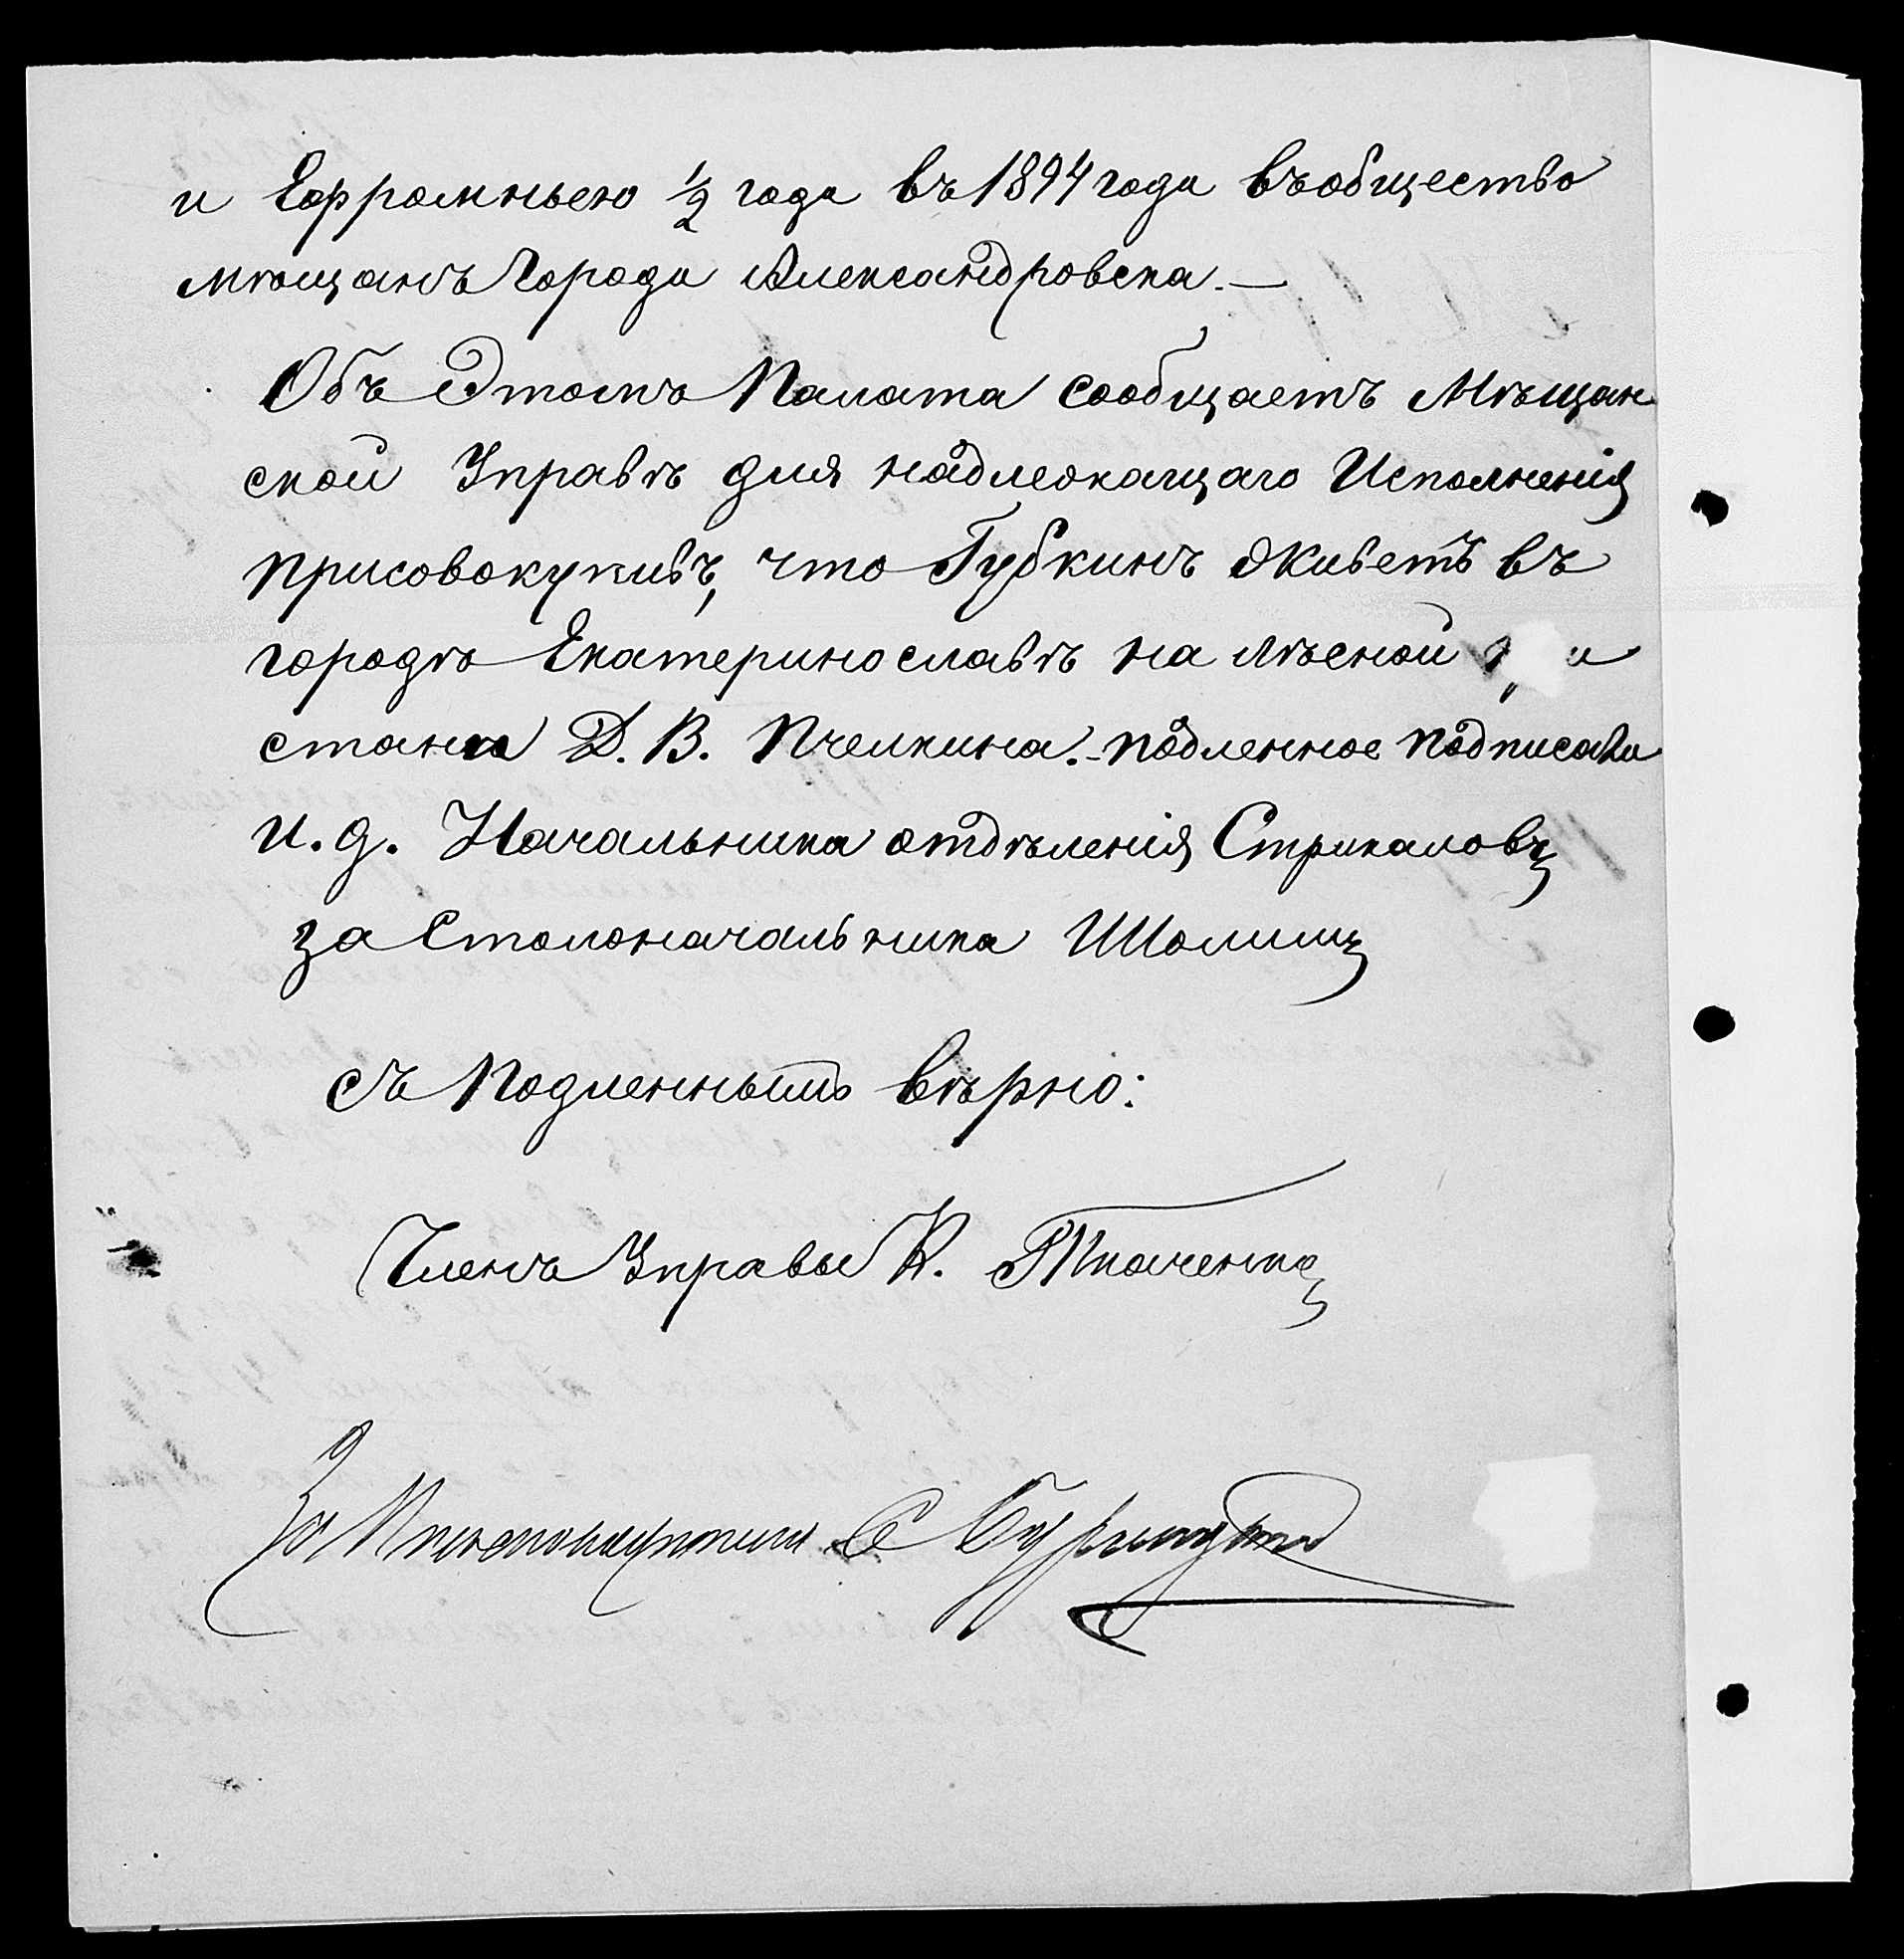 и Ефромньею ½ года въ 1894 года въ общество
мѣщанъ Города Александровска. —
Объ Этомъ Палата сообщаетъ Мѣщан
ской Управѣ для надлежащаго Исполненія
присовокупивъ, что Губкинъ Живетъ въ
городѣ Екатеринославѣ на лѣсной
стани Д. В. Пчелкина. - подленное подписали
И. д. Начальника отдѣленія Стрикаловъ
за Столоначальника Шолинъ
съ Подленнымъ вѣрно:
Членъ Управы К. Ткаченко
За С